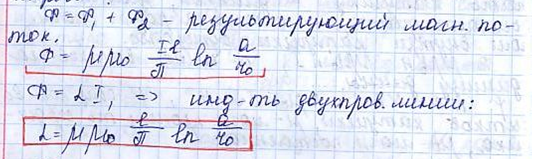 Ф = Ф₁ + Ф₂ – результирующий магн. по-
ток.
Ф = μμ₀ Iℓ/π ln a/r₀
Ф = LI, => инд-ть двухпров. линии:
L = μμ₀ ℓ/π ln a/r₀